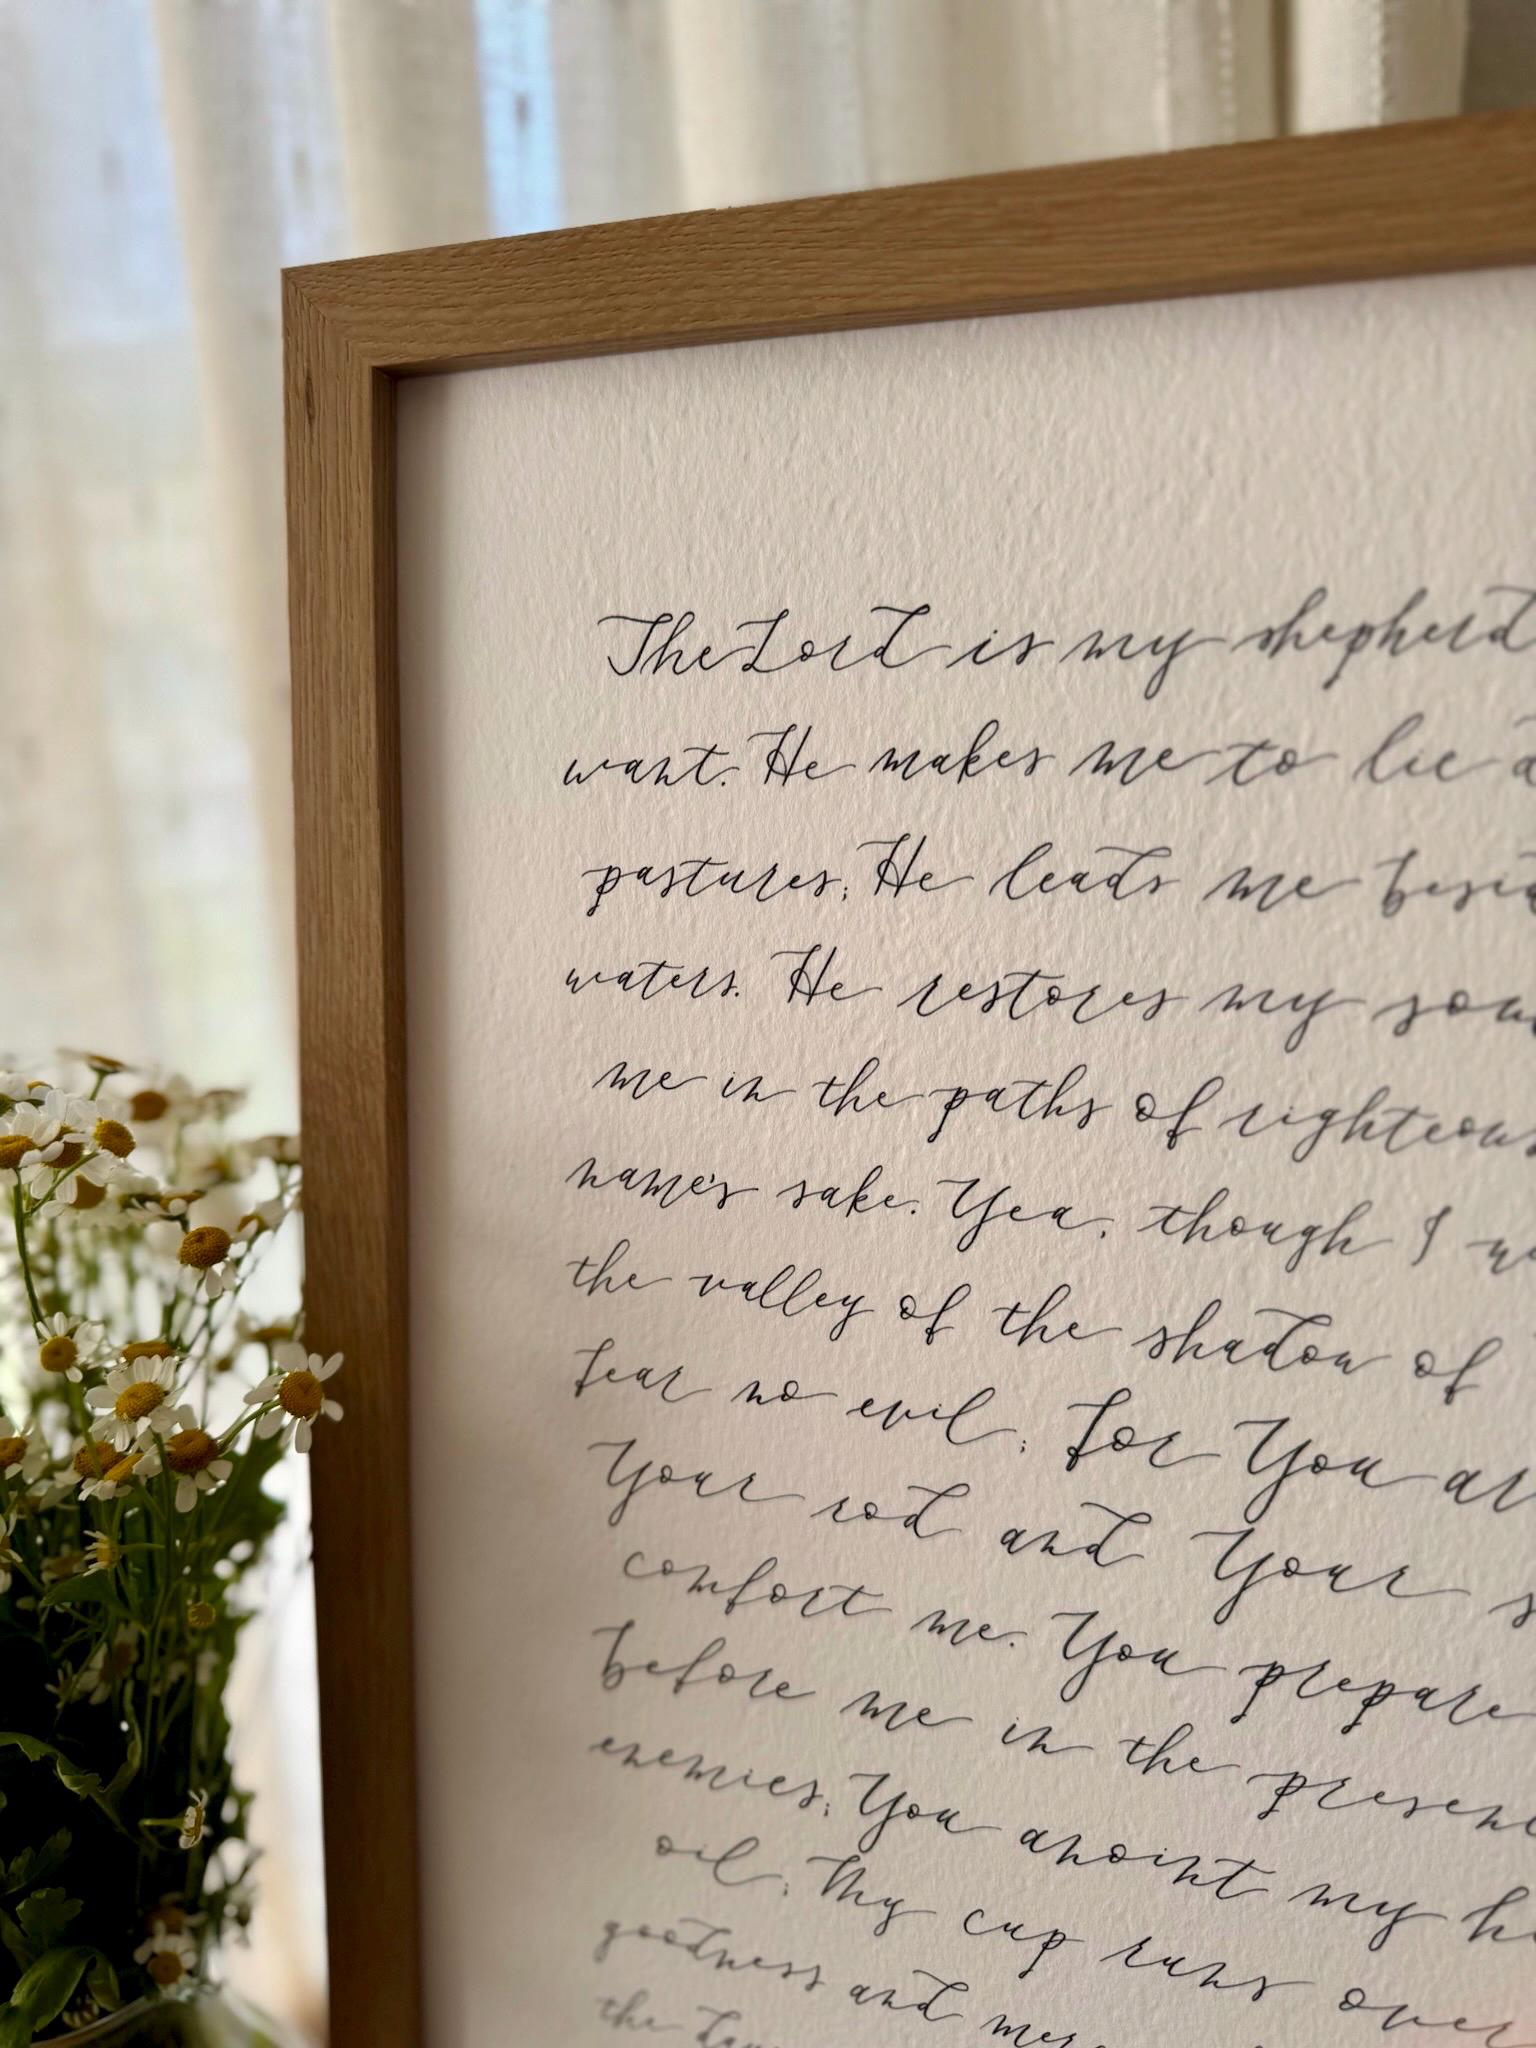 The Lord is my shepherd
want. He makes me to lie
pastures; He leads me
waters. He restores my
me in the paths of
name's sake. Yea, though I
the valley of the shadow of
fear no evil; for You
Your rod and Your
comfort me. You prepare
before me in the
enemies; You anoint my
oil; My cup runs over
goodness and
the